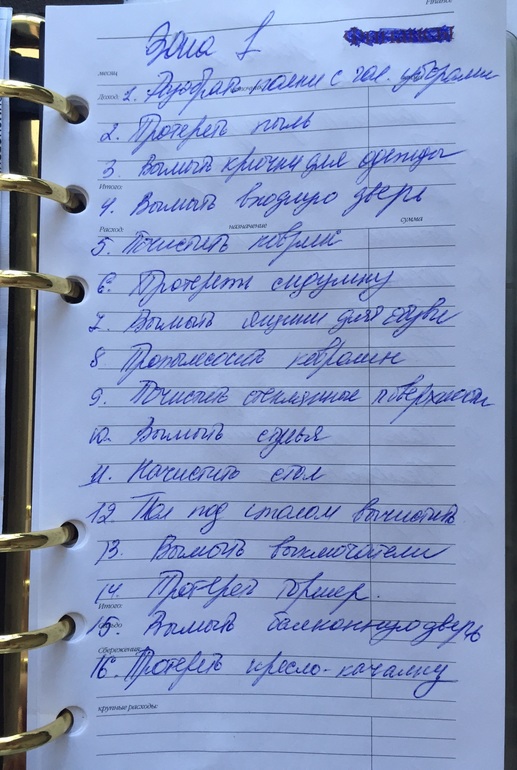 Финанс
Зона 1
месяц
Доход:
1. Разобрать полки с гол. уборами
2. Протереть пыль
3. Вымыть крючки для одежды
Итого:
4. Вымыть входную дверь
Расход: назначение сумма
5. Почистить коврик
6. Протереть сидушку
7. Вымыть ящики для обуви
8. Пропылесосить ковролин
9. Почистить стеклянные поверхности
10. Вымыть стулья
11. Начистить стол
12. Пол под столом вычистить
13. Вымыть выключатели
14. Протереть торшер.
Итого:
15. Вымыть балконную дверь
Сбережения:
16. Протереть кресло-качалку
крупные расходы: